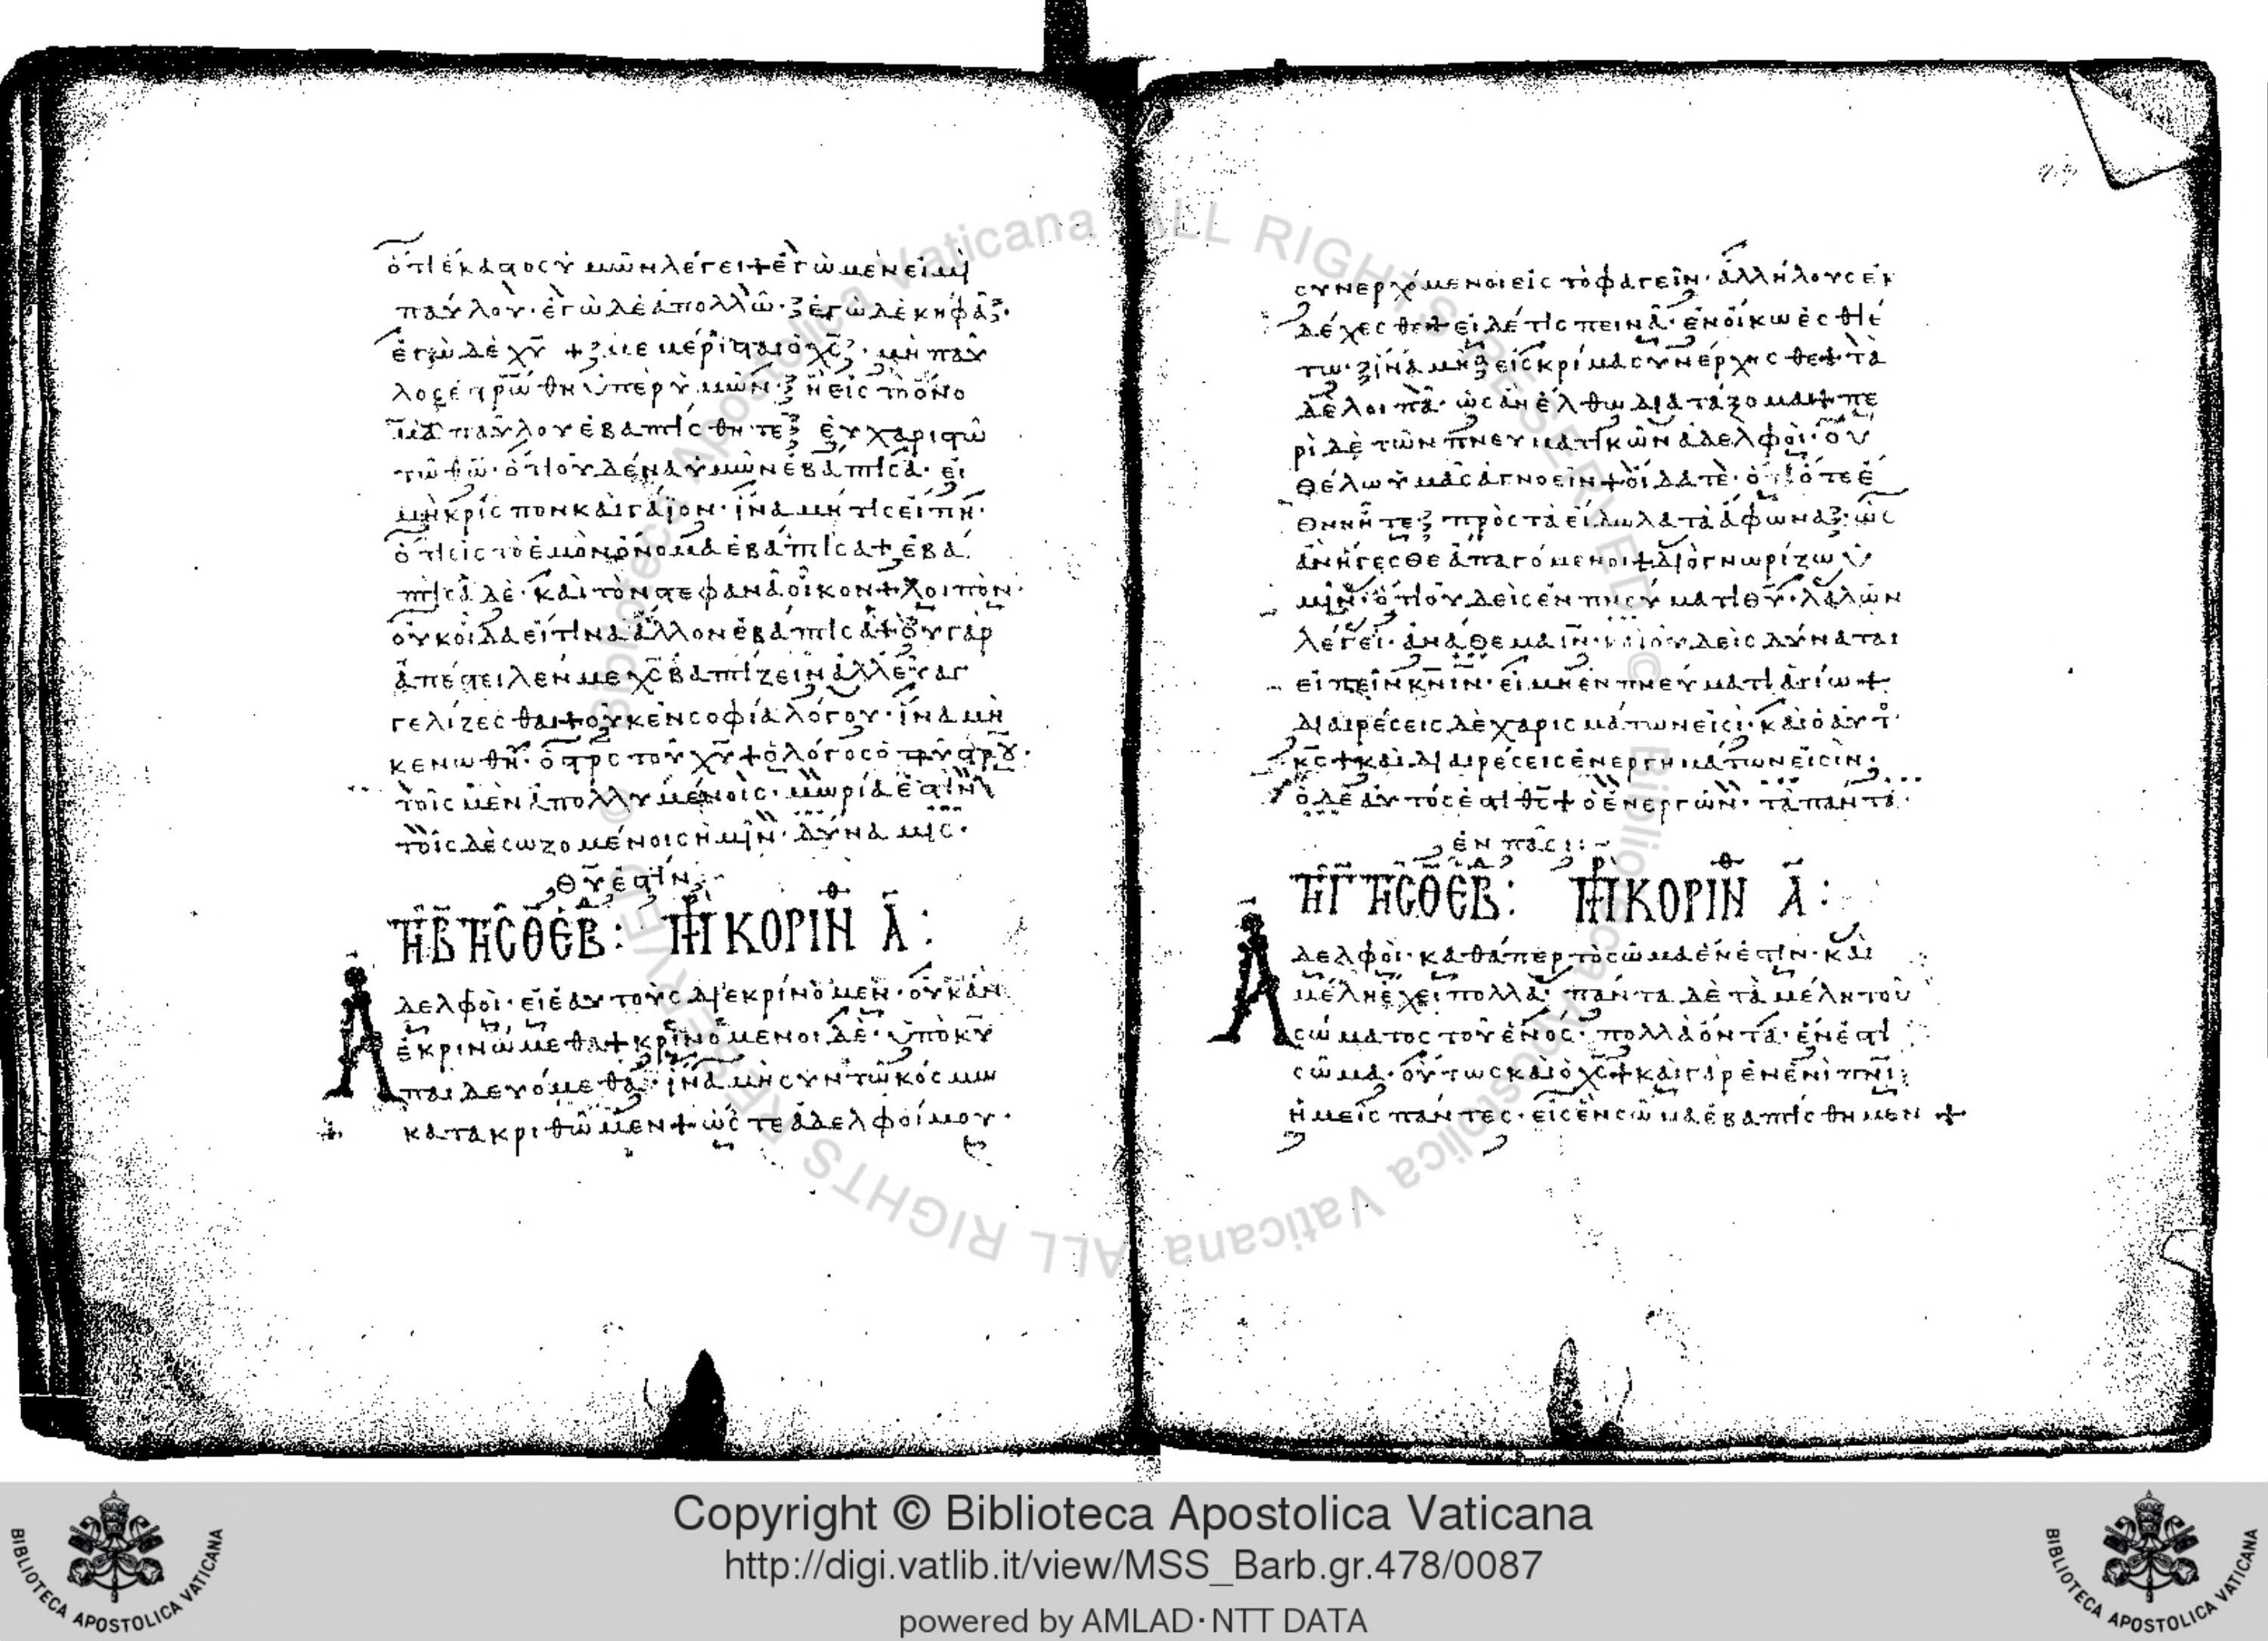 ὅτι ἕκαστος ὑμῶν λέγει + ἐγὼ μέν εἰμι
παύλου · ἐγὼ δὲ ἀπολλῶ · ἐγὼ δὲ κηφᾶ ·
ἐγὼ δὲ χῦ + μεμέρισται ὁ χς · μὴ παῦ
λος ἐστρώθη ὑπὲρ ὑμῶν · ἢ εἰς τὸ ὄνο
μα παύλου ἐβαπτίσθητε εὐχαριστῶ
τῶ θῶ · ὅτι οὐδένα ὑμῶν ἐβάπτισα · εἰ
μὴ κρίσπον καὶ γάϊον · ἵνα μή τις εἴπη ·
ὅτι εἰς τὸ ἐμὸν ὄνομα ἐβάπτισα + ἐβά
πτισα δὲ · καὶ τὸν στεφανᾶ οἶκον + λοιπὸν ·
οὐκ οἶδα εἴ τινα ἄλλον ἐβάπτισα + οὐ γὰρ
ἀπέστειλέν με χς βαπτίζειν ἀλλ εὐαγ
γελίζεσθαι + οὐκ ἐν σοφία λόγου · ἵνα μὴ
κενωθῆ · ὁ στρς τοῦ χῦ + ὁ λόγος ὁ τοῦ στρου ·
τοῖς μὲν ἀπολλυμένοις · μωρία ἐστὶν
τοῖς δὲ σωζομένοις ἡμῖν · δύναμις ·
θῦ ἐστίν
ΚΟΡΙΝΘ Α :
Αδελφοὶ · εἰ ἑαυτοὺς διεκρίνομεν · οὐκ ἂν
ἐκρινώμεθα + κρινόμενοι δὲ · ὑπὸ κῦ
παιδευόμεθα · ἵνα μὴ σὺν τῶ κόσμω
κατακριθῶμεν + ὥστε ἀδελφοί μου ·
συνερχόμενοι εἰς τὸ φαγεῖν · ἀλλήλους ἐκ
δέχεσθε + εἰ δέ τις πεινᾶ · ἐν οἴκω ἐσθιέ
τω · ἵνα μὴ εἰς κρίμα συνέρχησθε + τὰ
δὲ λοιπὰ · ὡς ἂν ἔλθω διατάξομαι + πε
ρὶ δὲ τῶν πνευματικῶν ἀδελφοὶ · οὐ
θέλω ὑμᾶς ἀγνοεῖν + οἴδατε · ὅτι ὅτε ἔ
θνη ἦτε πρὸς τὰ εἴδωλα τὰ ἄφωνα · ὡς
ἂν ἤγεσθε ἀπαγόμενοι + διὸ γνωρίζω ὑ
μῖν · ὅτι οὐδεὶς ἐν πνεύματι θῦ · λαλῶν
λέγει · ἀνάθεμα ιν · καὶ οὐδεὶς δύναται
εἰπεῖν κν ιν · εἰ μὴ ἐν πνεύματι ἁγίω +
διαιρέσεις δὲ χαρισμάτων εἰσὶ · καὶ ὁ αὐτὸ
κς + καὶ διαιρέσεις ἐνεργημάτων εἰσὶν ·
ὁ δὲ αὐτός ἐστι θς + ὁ ἐνεργῶν · τὰ πάντα ·
ἐν πᾶσι :
ΚΟΡΙΝΘ Α :
Αδελφοὶ · καθάπερ τὸ σῶμα ἕν ἐστιν · καὶ
μέλη ἔχει πολλὰ · πάντα δὲ τὰ μέλη τοῦ
σώματος τοῦ ἑνὸς · πολλὰ ὄντα · ἕν ἐστι
σῶμα · οὕτως καὶ ὁ χς + καὶ γὰρ ἐν ἑνὶ πνι
ἡμεῖς πάντες · εἰς ἓν σῶμα ἐβαπτίσθημεν +
Copyright © Biblioteca Apostolica Vaticana
http://digi.vatlib.it/view/MSS_Barb.gr.478/0087
powered by AMLAD·NTT DATA
BIBLIOTECA APOSTOLICA VATICANA
BIBLIOTECA APOSTOLICA VATICANA